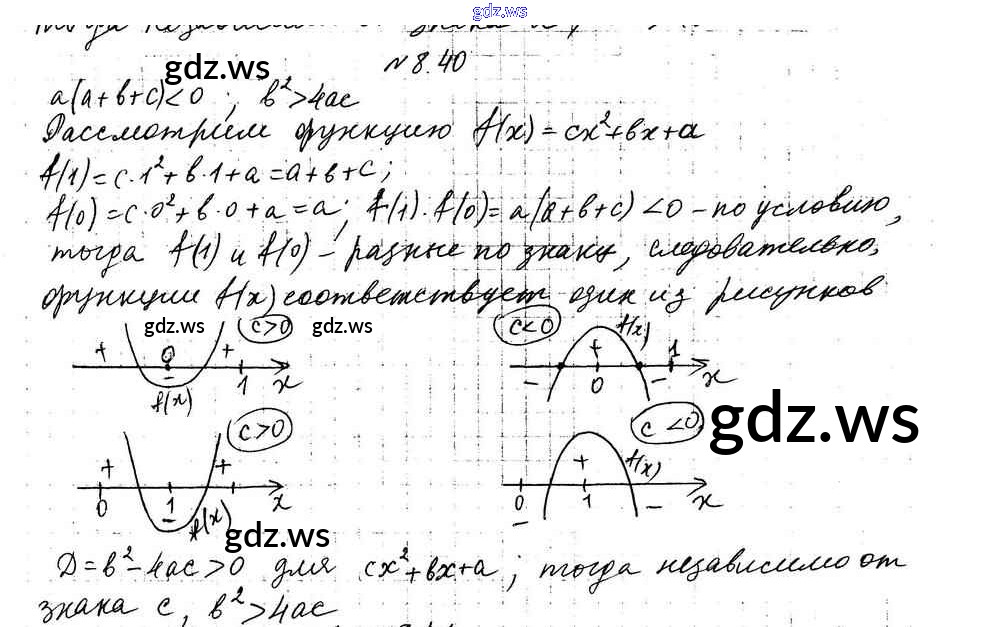 gdz.ws
№ 8.40
gdz.ws
a(a+b+c)<0 ; b²>4ac
Рассмотрим функцию f(x)=cx²+bx+a
f(1)=c·1²+b·1+a=a+b+c;
f(0)=c·0²+b·0+a=a; f(1)·f(0)=a(a+b+c)<0 – по условию,
тогда f(1) и f(0) – разные по знаку, следовательно,
функции f(x) соответствует один из рисунков
gdz.ws c>0 gdz.ws c<0 f(x)
+ 0 + + 1
− 1 x − 0 − x
f(x)
gdz.ws
c>0 c<0
+ + + f(x)
0 1 x 0 1 x
− f(x) − −
gdz.ws
D=b²−4ac>0 для cx²+bx+a; тогда независимо от
знака c, b²>4ac